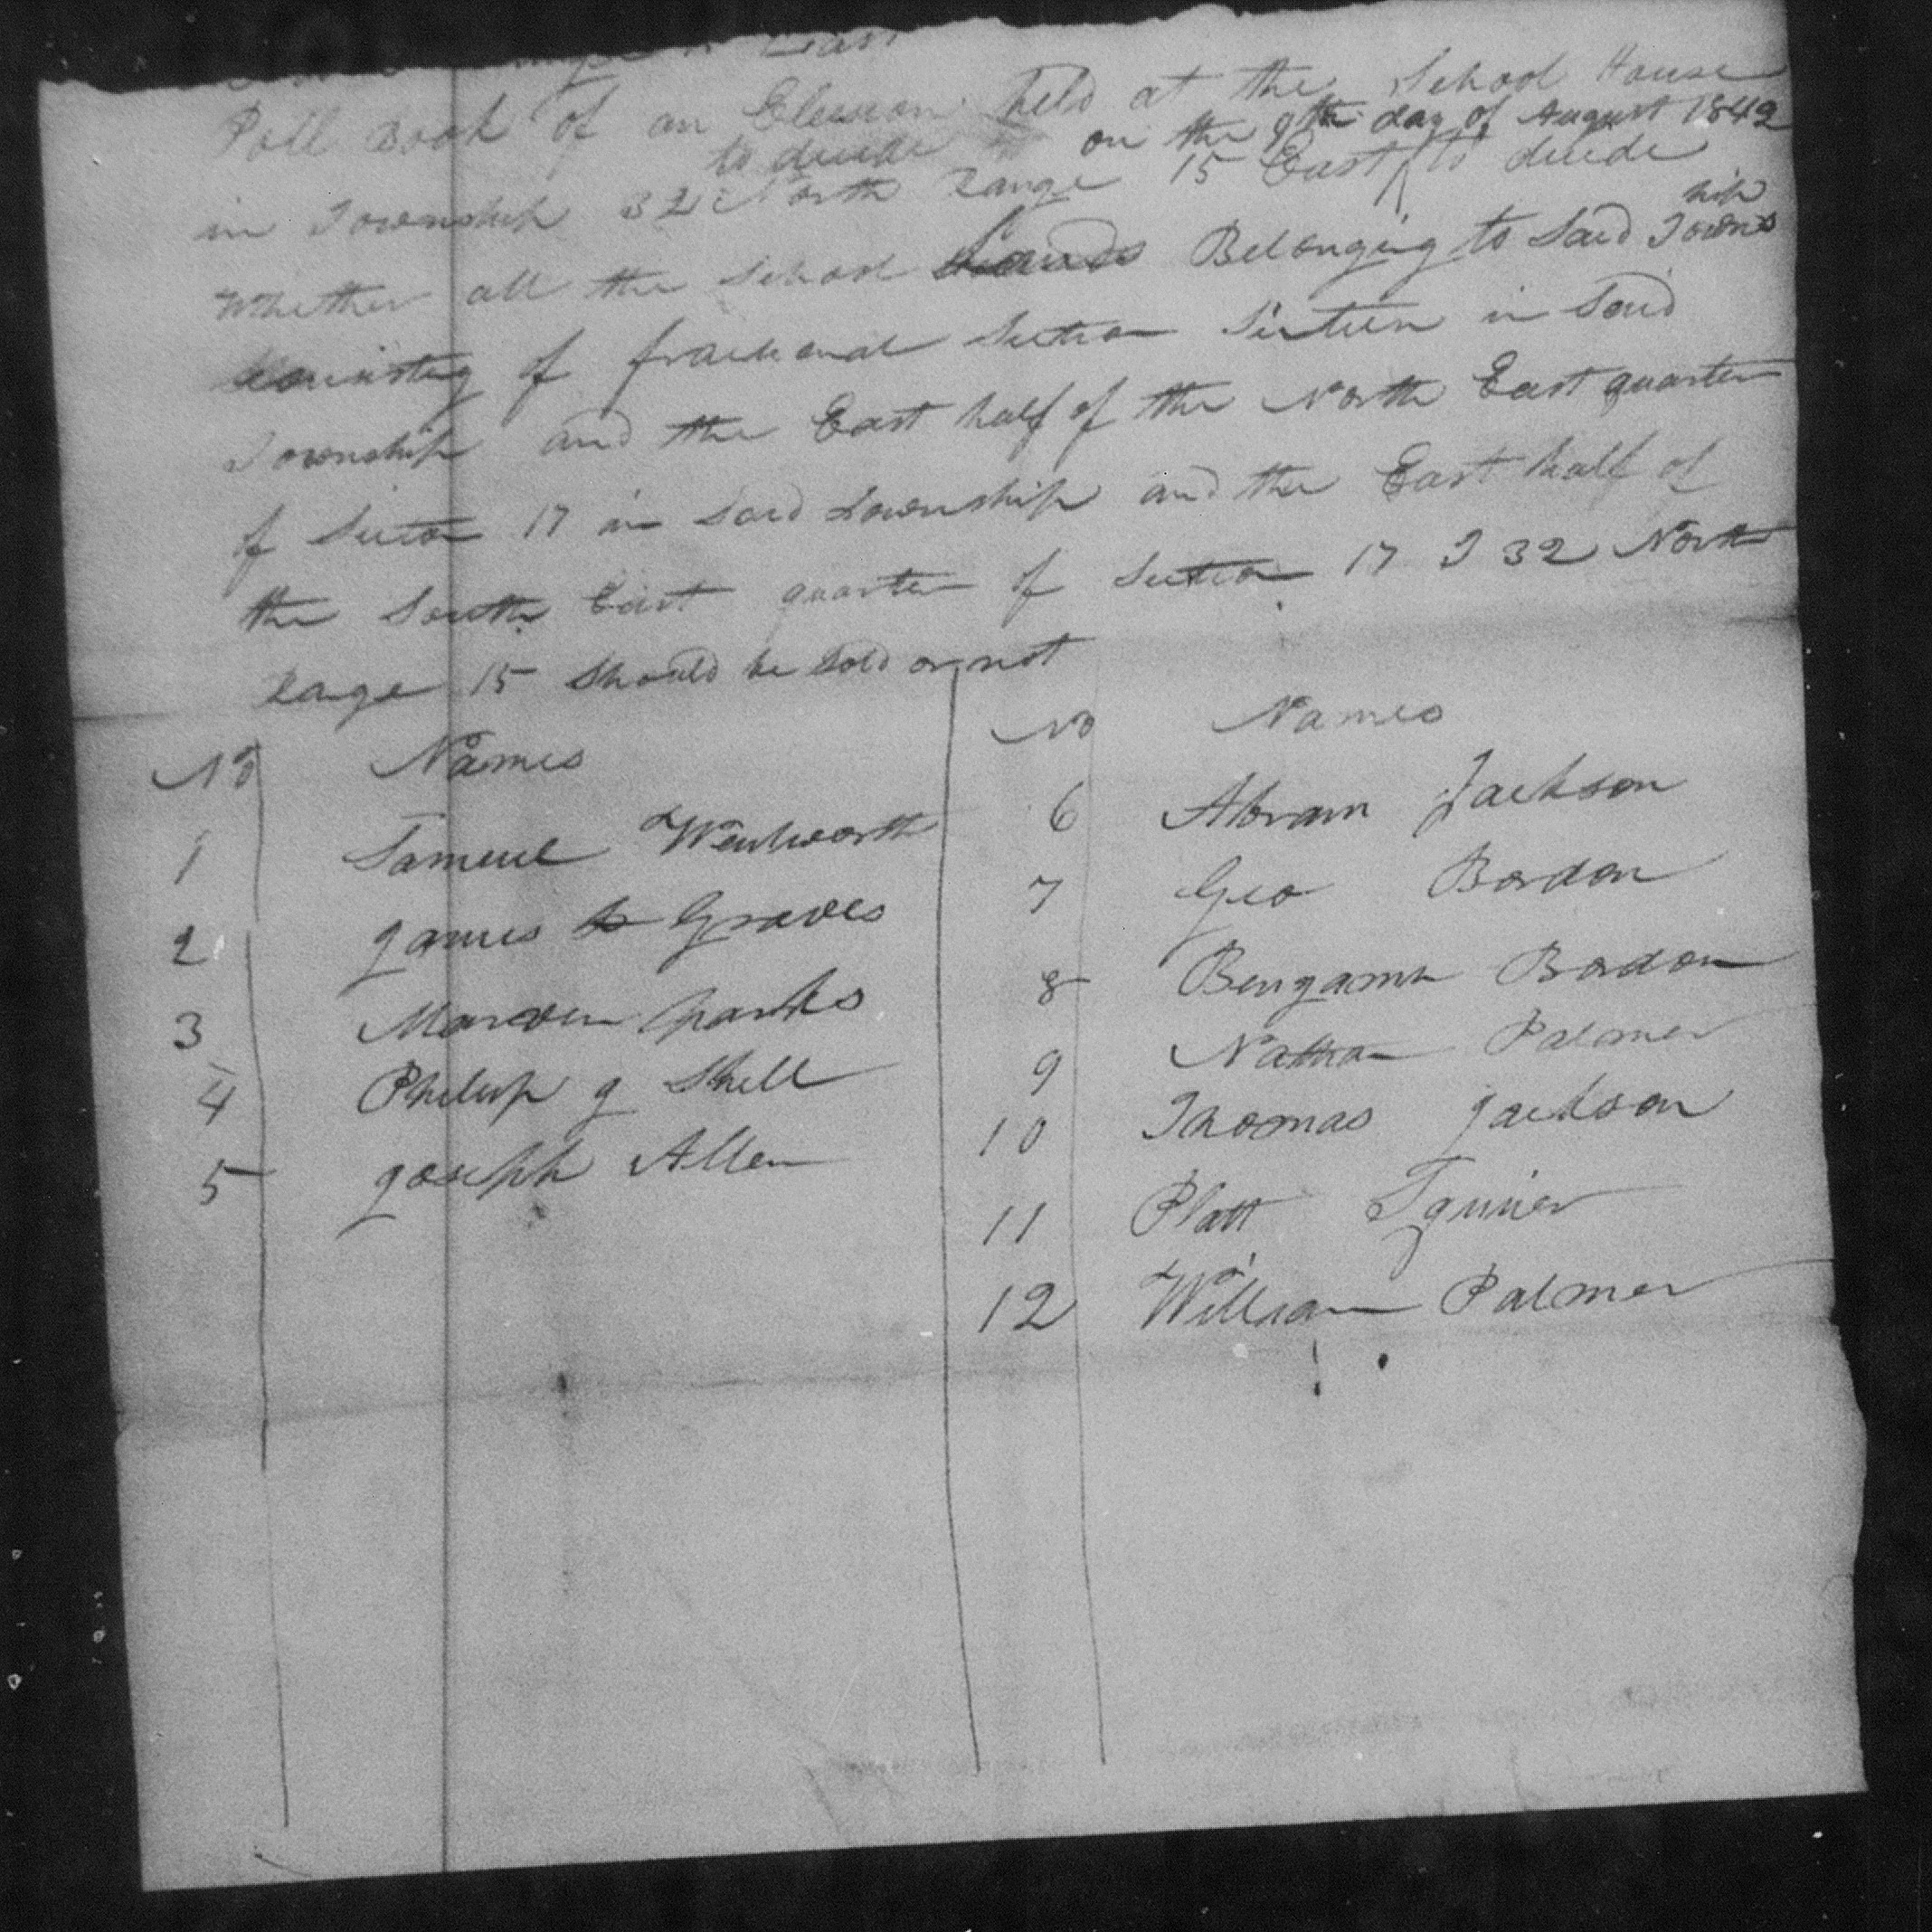 East
Poll Book of an Election held at the School House
to decide on the 9th day of August 1842
in Township 32 North Range 15 East to decide
ship
Whether all the School Lands Belonging to Said Towns
Consisting of fractional Section Sixteen in Said
Township and the East half of the North East quarter
of Section 17 in Said Township and the East half of
the South East quarter of Section 17 T 32 North
Range 15 Should be Sold or not
No Names No Names
1 Samuel Wentworth 6 Abram Jackson
2 James Graves 7 Geo Bordon
3 Marven Parks 8 Bengamn Bordon
4 Philup J Shell 9 Nathan Palmer
5 Joseph Allen 10 Thomas Jackson
11 Platt Squier
12 William Palmer